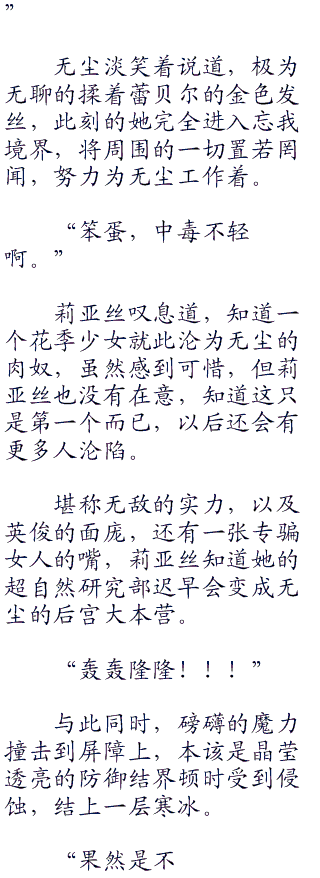 ”
无尘淡笑着说道，极为
无聊的揉着蕾贝尔的金色发
丝，此刻的她完全进入忘我
境界，将周围的一切置若罔
闻，努力为无尘工作着。
“笨蛋，中毒不轻
啊。”
莉亚丝叹息道，知道一
个花季少女就此沦为无尘的
肉奴，虽然感到可惜，但莉
亚丝也没有在意，知道这只
是第一个而已，以后还会有
更多人沦陷。
堪称无敌的实力，以及
英俊的面庞，还有一张专骗
女人的嘴，莉亚丝知道她的
超自然研究部迟早会变成无
尘的后宫大本营。
“轰轰隆隆！！！”
与此同时，磅礴的魔力
撞击到屏障上，本该是晶莹
透亮的防御结界顿时受到侵
蚀，结上一层寒冰。
“果然是不